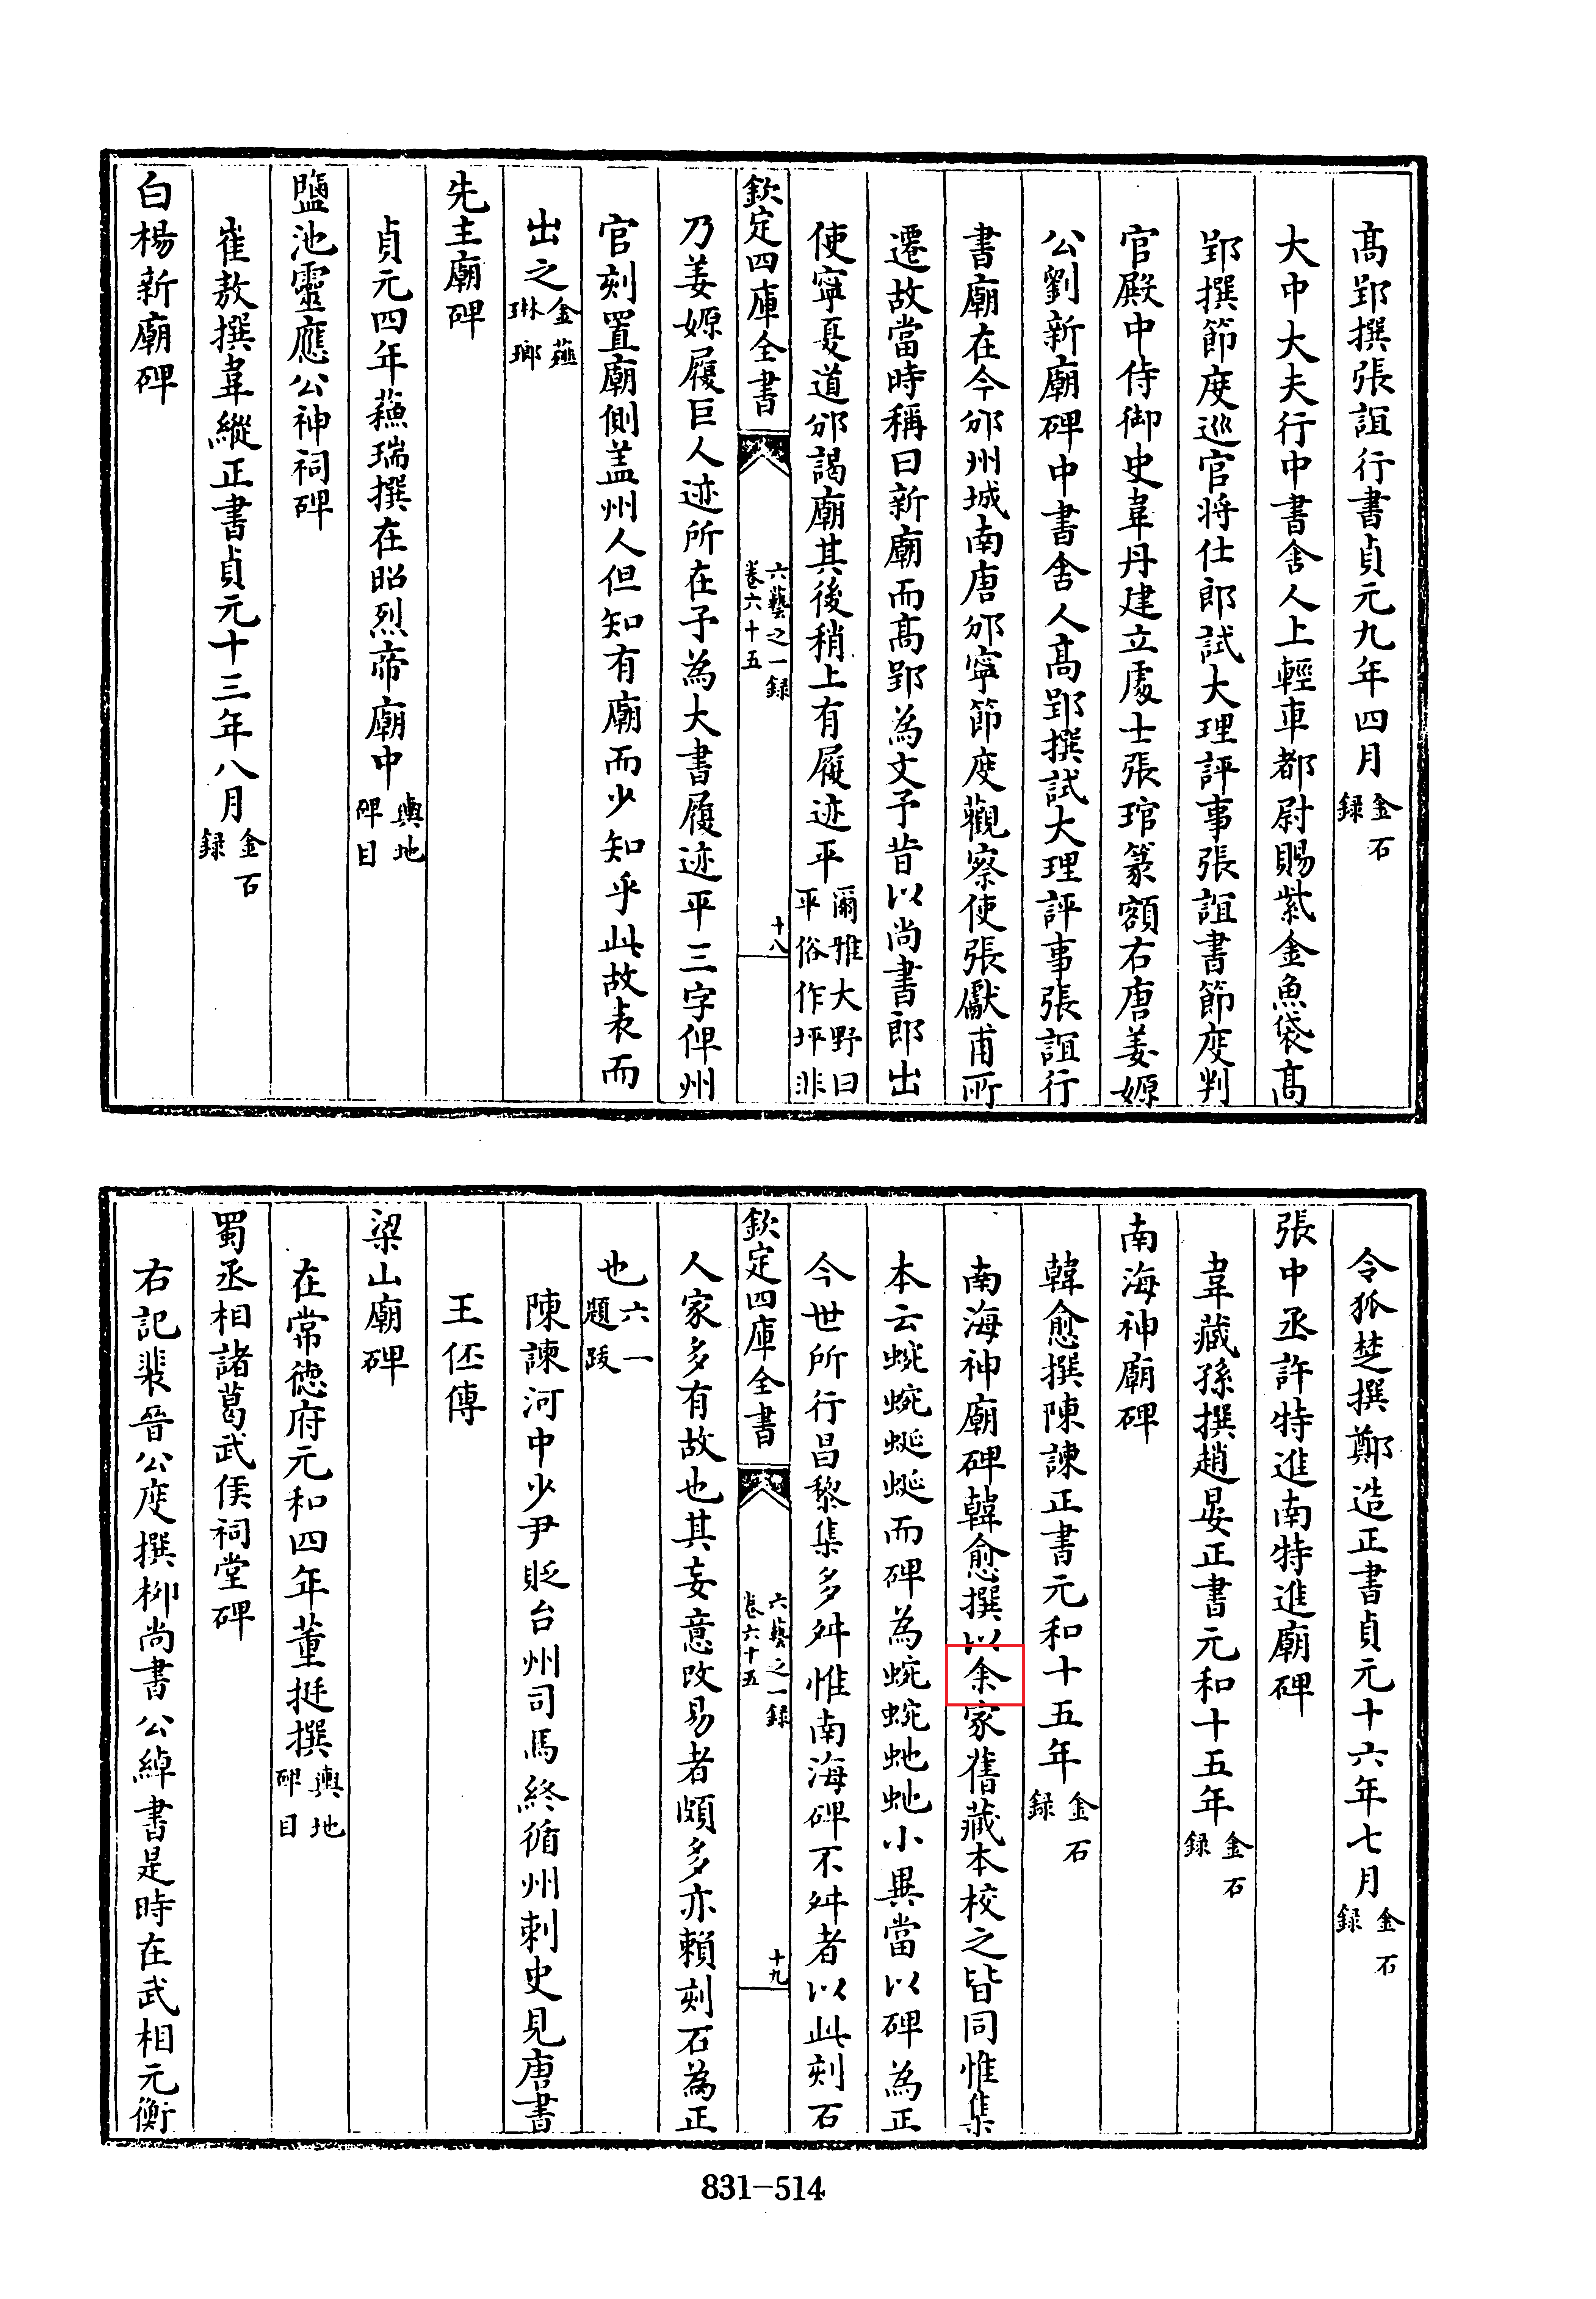 髙郢撰張誼行書貞元九年四月金石録
大中大夫行中書舍人上輕車都尉賜紫金魚袋髙
郢撰節度巡官将仕郎試大理評事張誼書節度判
官殿中侍御史韋丹建立處士張琯篆額右唐姜嫄
公劉新廟碑中書舍人髙郢撰試大理評事張誼行
書廟在今邠州城南唐邠寧節度觀察使張獻甫所
遷故當時稱曰新廟而髙郢為文予昔以尚書郎出
使寧夏道邠謁廟其後稍上有履迹平爾雅大野曰平俗作坪非
欽定四庫全書
六藝之一録
卷六十五
十八
乃姜嫄履巨人迹所在予為大書履迹平三字俾州
官刻置廟側盖州人但知有廟而少知乎此故表而
出之金薤琳瑯
先主廟碑
貞元四年蘓瑞撰在昭烈帝廟中輿地碑目
鹽池靈應公神祠碑
崔敖撰韋縱正書貞元十三年八月金石録
白楊新廟碑
令狐楚撰鄭造正書貞元十六年七月金石録
張中丞許特進南特進廟碑
韋臧孫撰趙晏正書元和十五年金石録
南海神廟碑
韓愈撰陳諫正書元和十五年金石録
南海神廟碑韓愈撰以余家舊藏本校之皆同惟集
本云蜿蜿蜒蜒而碑為蜿蜿虵虵小異當以碑為正
今世所行昌黎集多舛惟南海碑不舛者以此刻石
欽定四庫全書
六藝之一録
卷六十五
十九
人家多有故也其妄意改易者頗多亦頼刻石為正
也六一題跋
陳諫河中少尹貶台州司馬終循州刺史見唐書
王伾傳
梁山廟碑
在常徳府元和四年董挺撰輿地碑目
蜀丞相諸葛武侯祠堂碑
右記裴晉公度撰栁尚書公綽書是時在武相元衡
831-514